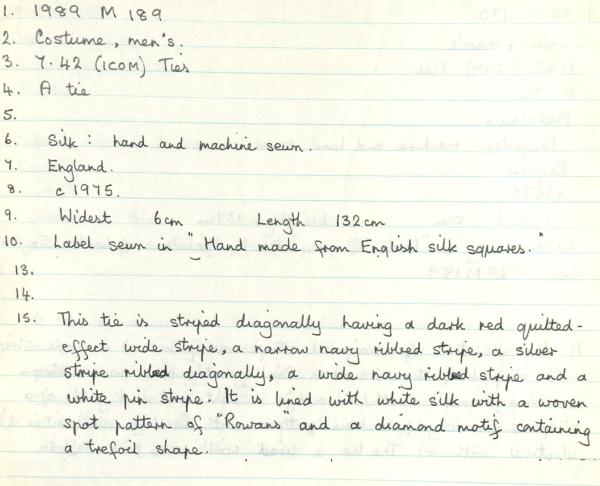 1. 1989 M 189
2. Costume, men's.
3. 7.42 (ICOM) Ties
4. A tie
5.
6. Silk : hand and machine sewn.
7. England.
8. c 1975.
9. Widest 6cm Length 132cm
10. Label sewn in "Hand made from English silk squares."
13.
14.
15. This tie is striped diagonally having a dark red quilted-
effect wide stripe, a narrow navy ribbed stripe, a silver
stripe ribbed diagonally, a wide navy ribbed stripe and a
white pin stripe. It is lined with white silk with a woven
spot pattern of "Rowans" and a diamond motif containing
a trefoil shape.